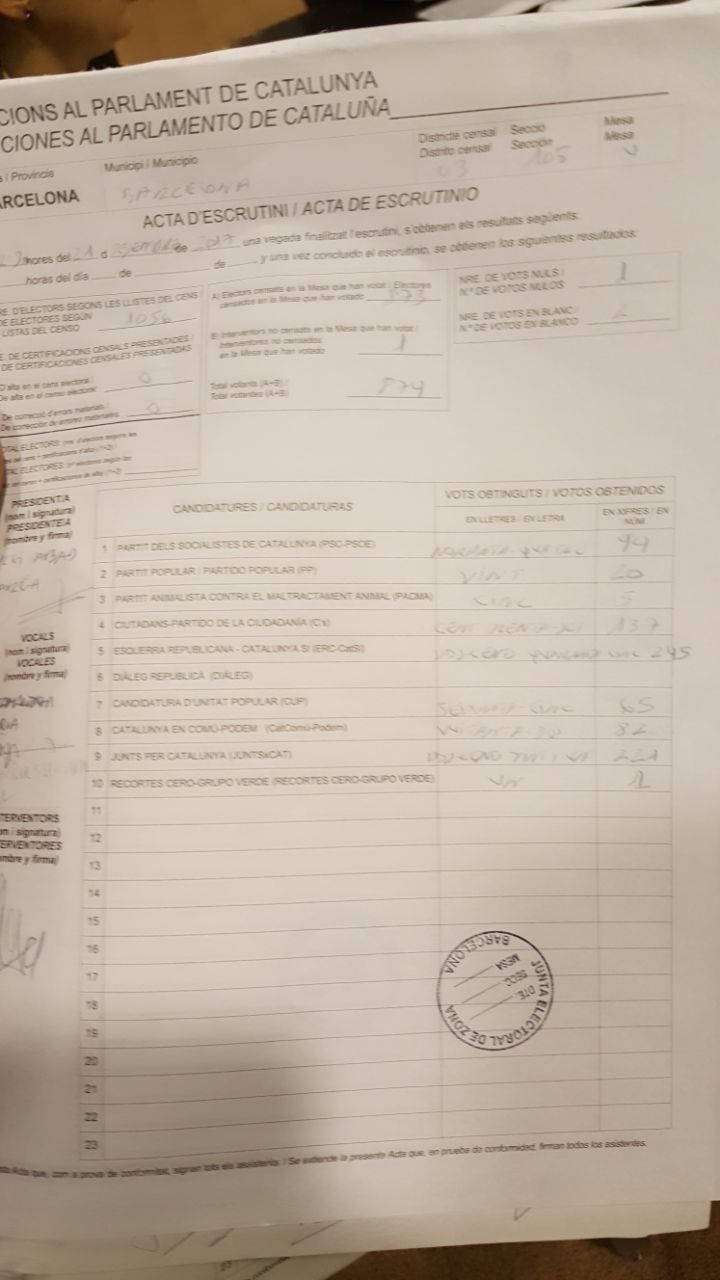 CIONS AL PARLAMENT DE CATALUNYA
CIONES AL PARLAMENTO DE CATALUÑA
/ Provincia
Municipi / Municipio
Districte censal Secció Mesa
Distrito censal Sección Mesa
ARCELONA
BARCELONA
03 105 U
ACTA D'ESCRUTINI / ACTA DE ESCRUTINIO
hores del 21 d de 2017, una vegada finalitzat l'escrutini, s'obtenen els resultats següents:
horas del día de de y una vez concluido el escrutinio, se obtienen los siguientes resultados:
E. D'ELECTORS SEGONS LES LLISTES DEL CENS /
DE ELECTORES SEGÚN
LISTAS DEL CENSO 1056
E. DE CERTIFICACIONS CENSALS PRESENTADES /
DE CERTIFICACIONES CENSALES PRESENTADAS
D'alta en el cens electoral /
De alta en el censo electoral 0
De correcció d'errors materials /
De corrección de errores materiales 0
A) Electors censats en la Mesa que han votat / Electores
censados en la Mesa que han votado 873
B) Interventors no censats en la Mesa que han votat /
Interventores no censados
en la Mesa que han votado 1
Total votants (A+B) /
Total votantes (A+B) 874
NRE. DE VOTS NULS /
N.º DE VOTOS NULOS 1
NRE. DE VOTS EN BLANC /
N.º DE VOTOS EN BLANCO
PRESIDENT/A
(nom i signatura)
PRESIDENTE/A
(nombre y firma)
VOCALS
(nom i signatura)
VOCALES
(nombre y firma)
TERVENTORS
m i signatura)
ERVENTORES
mbre y firma)
CANDIDATURES / CANDIDATURAS
VOTS OBTINGUTS / VOTOS OBTENIDOS
EN LLETRES / EN LETRA
EN XIFRES / EN NÚM
1 PARTIT DELS SOCIALISTES DE CATALUNYA (PSC-PSOE) 94
2 PARTIT POPULAR / PARTIDO POPULAR (PP) VINT 20
3 PARTIT ANIMALISTA CONTRA EL MALTRACTAMENT ANIMAL (PACMA) CINC 5
4 CIUTADANS-PARTIDO DE LA CIUDADANÍA (C's) 137
5 ESQUERRA REPUBLICANA - CATALUNYA SÍ (ERC-CatSí) 245
6 DIÀLEG REPUBLICÀ (DIÀLEG)
7 CANDIDATURA D'UNITAT POPULAR (CUP) 65
8 CATALUNYA EN COMÚ-PODEM (CatComú-Podem) 82
9 JUNTS PER CATALUNYA (JUNTSxCAT) 221
10 RECORTES CERO-GRUPO VERDE (RECORTES CERO-GRUPO VERDE) UN 1
11
12
13
14
15
16
17
18
19
20
21
22
23
JUNTA ELECTORAL DE ZONA
BARCELONA
DTE.
SECC.
MESA
Acta que, com a prova de conformitat, signen tots els assistents. / Se extiende la presente Acta que, en prueba de conformidad, firman todos los asistentes.